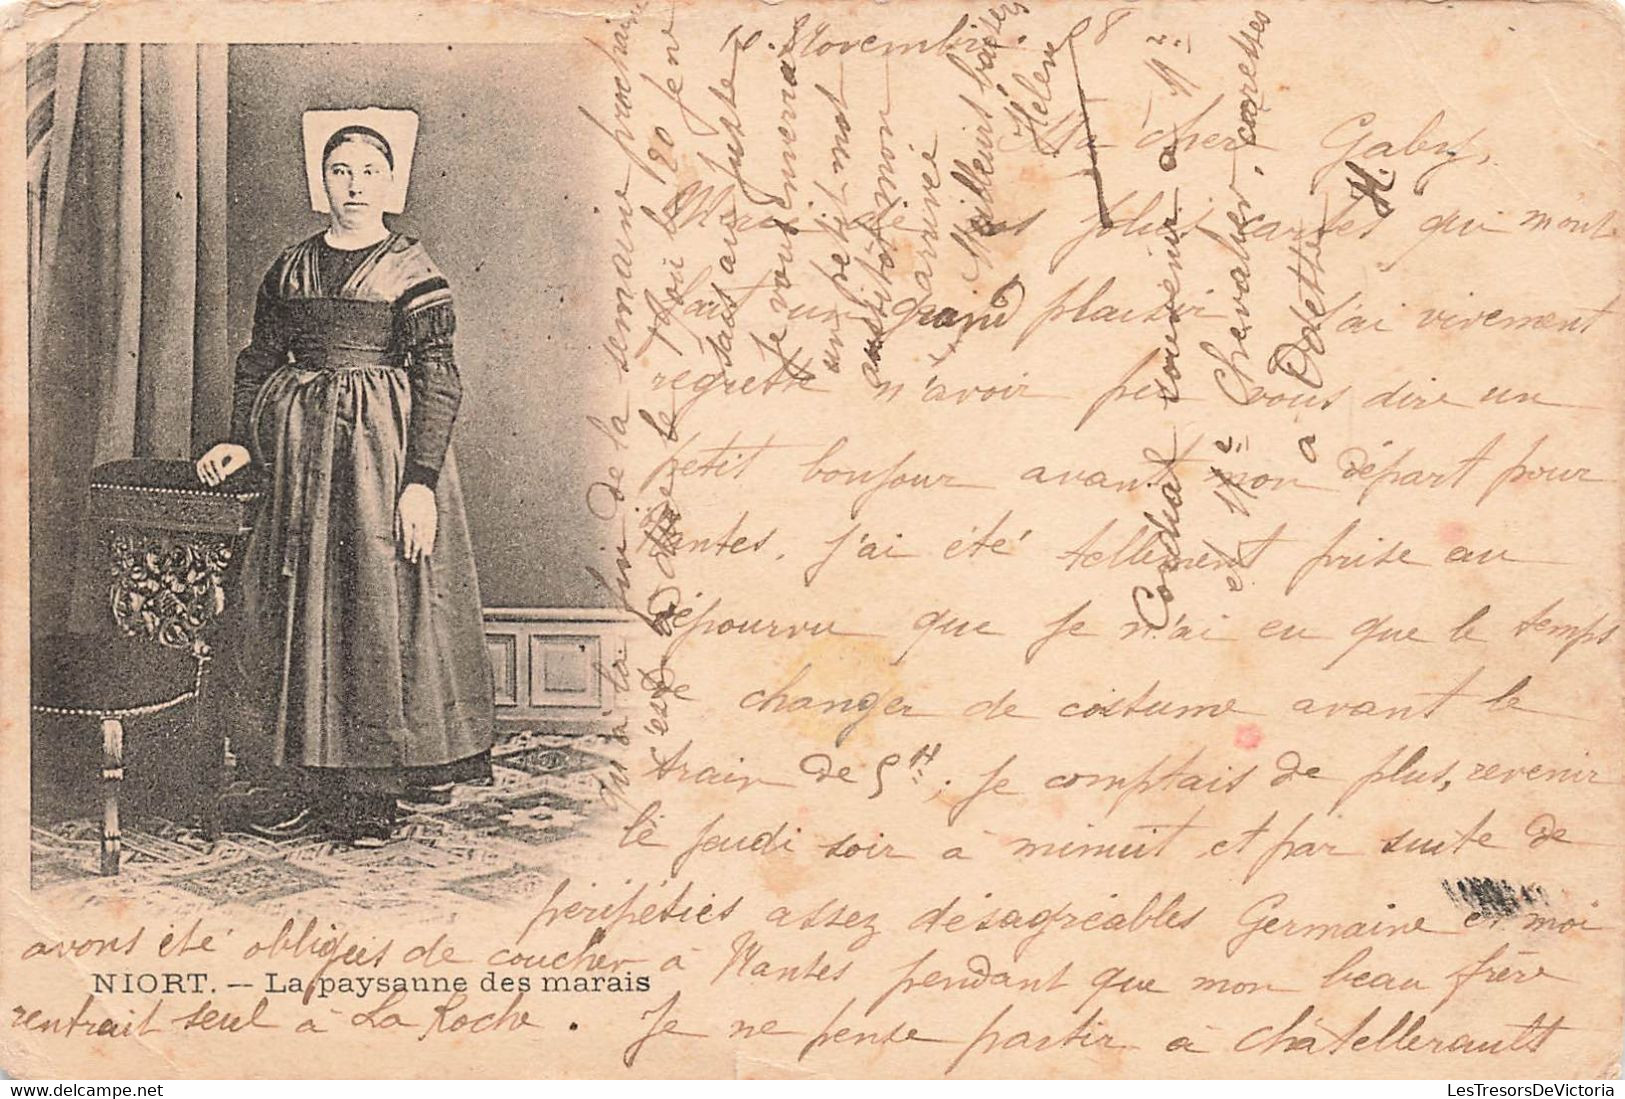 Novembre 98
Ma chère Gaby,
Merci de vos plus cartes qui m'ont
fait un grand plaisir. J'ai vivement
regretté n'avoir pu vous dire un
petit bonjour avant mon départ pour
Nantes. J'ai été tellement prise au
dépourvu que je n'ai eu que le temps
de changer de costume avant le
train de 5H; je comptais de plus, revenir
le jeudi soir à minuit et par suite de
péripéties assez désagréables Germaine et moi
avons été obligées de coucher à Nantes pendant que mon beau frère
rentrait seul à La Roche. Je ne pense partir à Châtellerault
qu'à la fin de la semaine prochaine
c'est-à-dire le 19 où le 20 je ne
sais au juste
Je vous enverrai
un petit mot
aussitôt mon
arrivée
Meilleurs baisers
Hélène
Cordial souvenir à Mr
et Me Chevalier, caresses
à Odette
H.
NIORT. — La paysanne des marais
LesTresorsDeVictoria